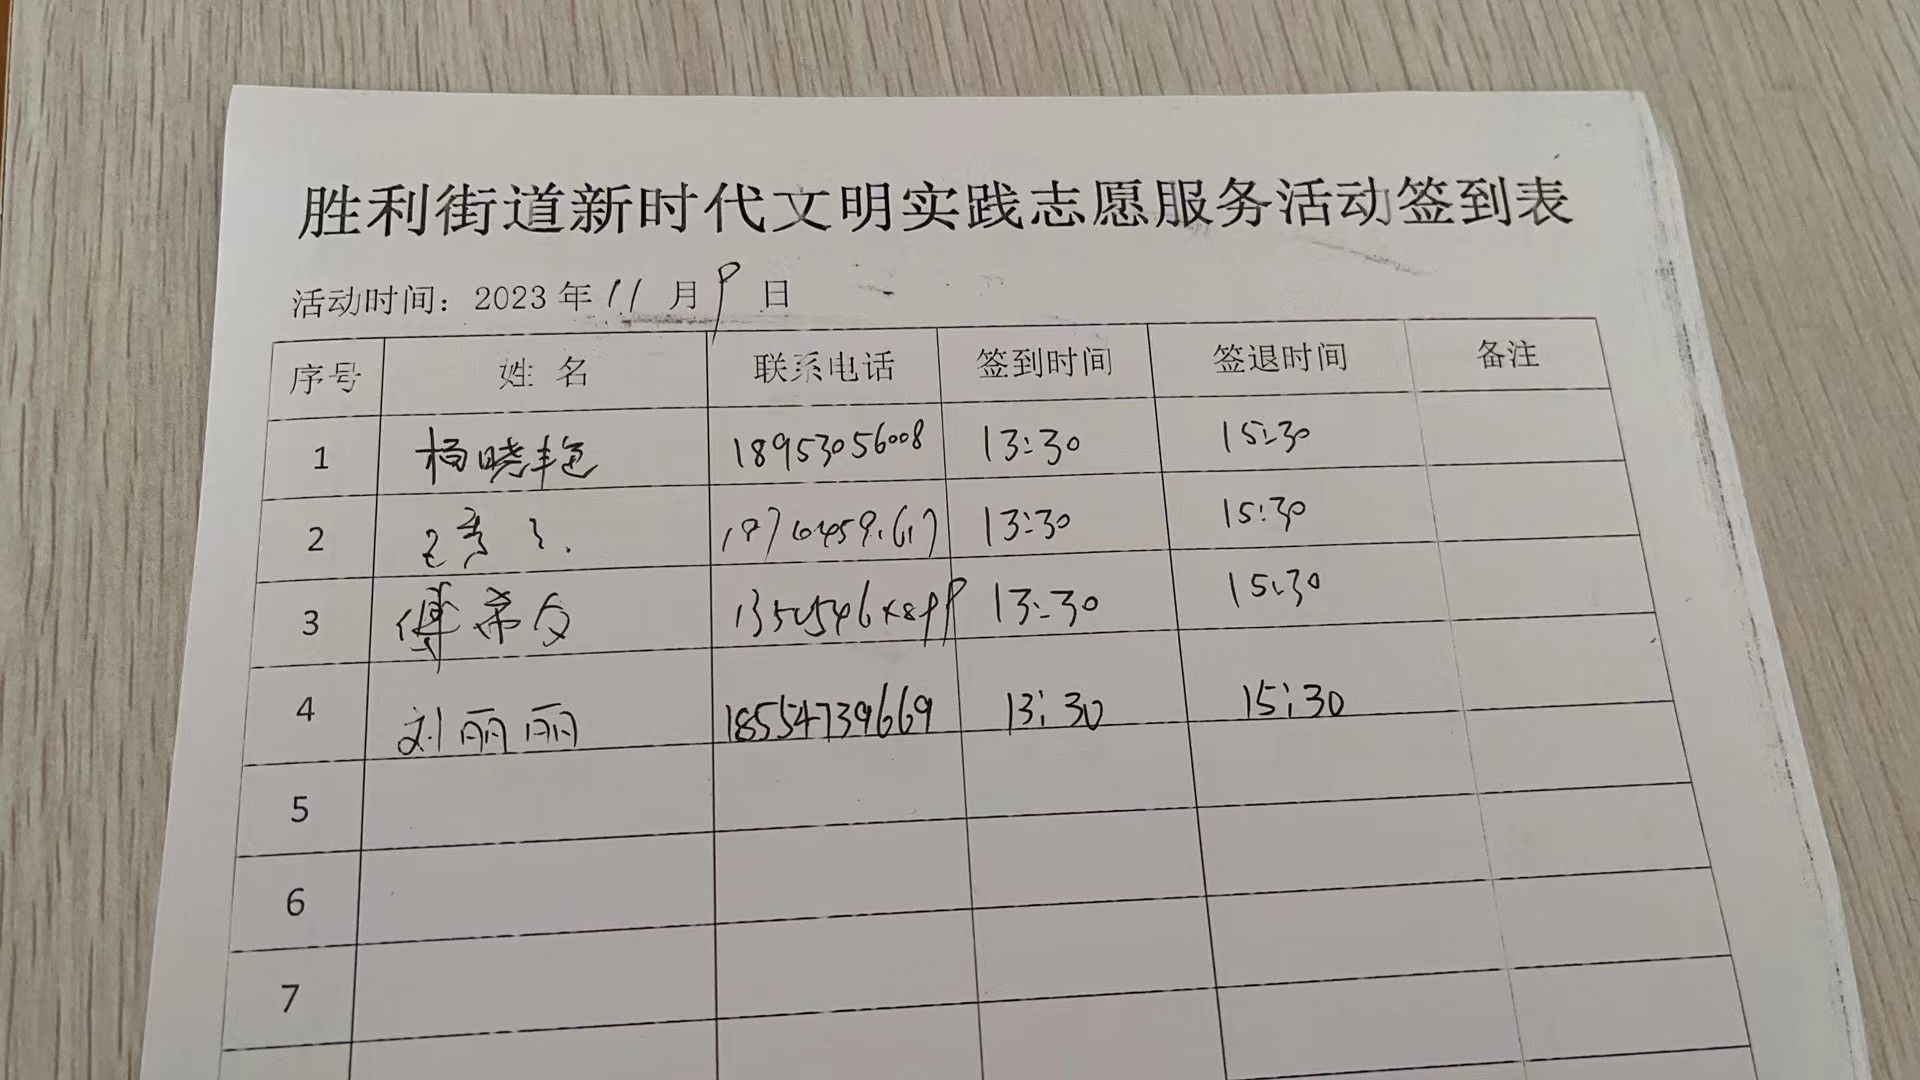 胜利街道新时代文明实践志愿服务活动签到表
活动时间：2023年11月9日
序号 姓名 联系电话 签到时间 签退时间 备注
1 杨晓艳 18953056008 13:30 15:30
2 13:30 15:30
3 傅 13:30 15:30
4 刘丽丽 18554739669 13:30 15:30
5
6
7